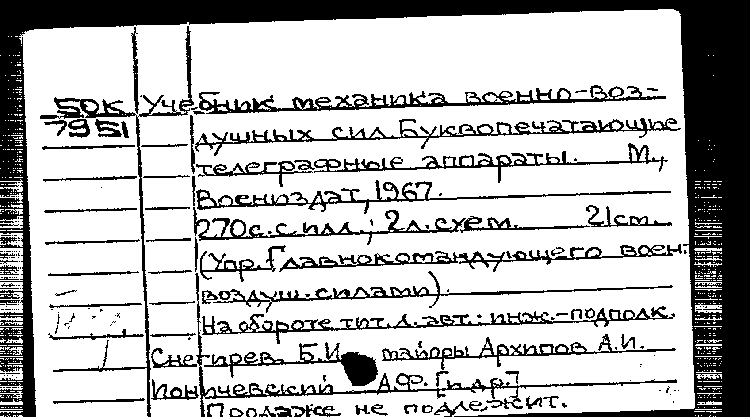 50К Учебник механика военно-воз-
7951
душных сил. Буквопечатающие
телеграфные аппараты. М.,
Воениздат, 1967.
270с. с илл.; 2л. схем. 21см.
(Упр. Главнокомандующего воен.-
воздуш. силами).
На обороте тит. л. авт.: инж.-подполк.
Снегирев Б.И. майоры Архипов А.И.
Поничевский А.Ф. [и др.]
Продаже не подлежит.